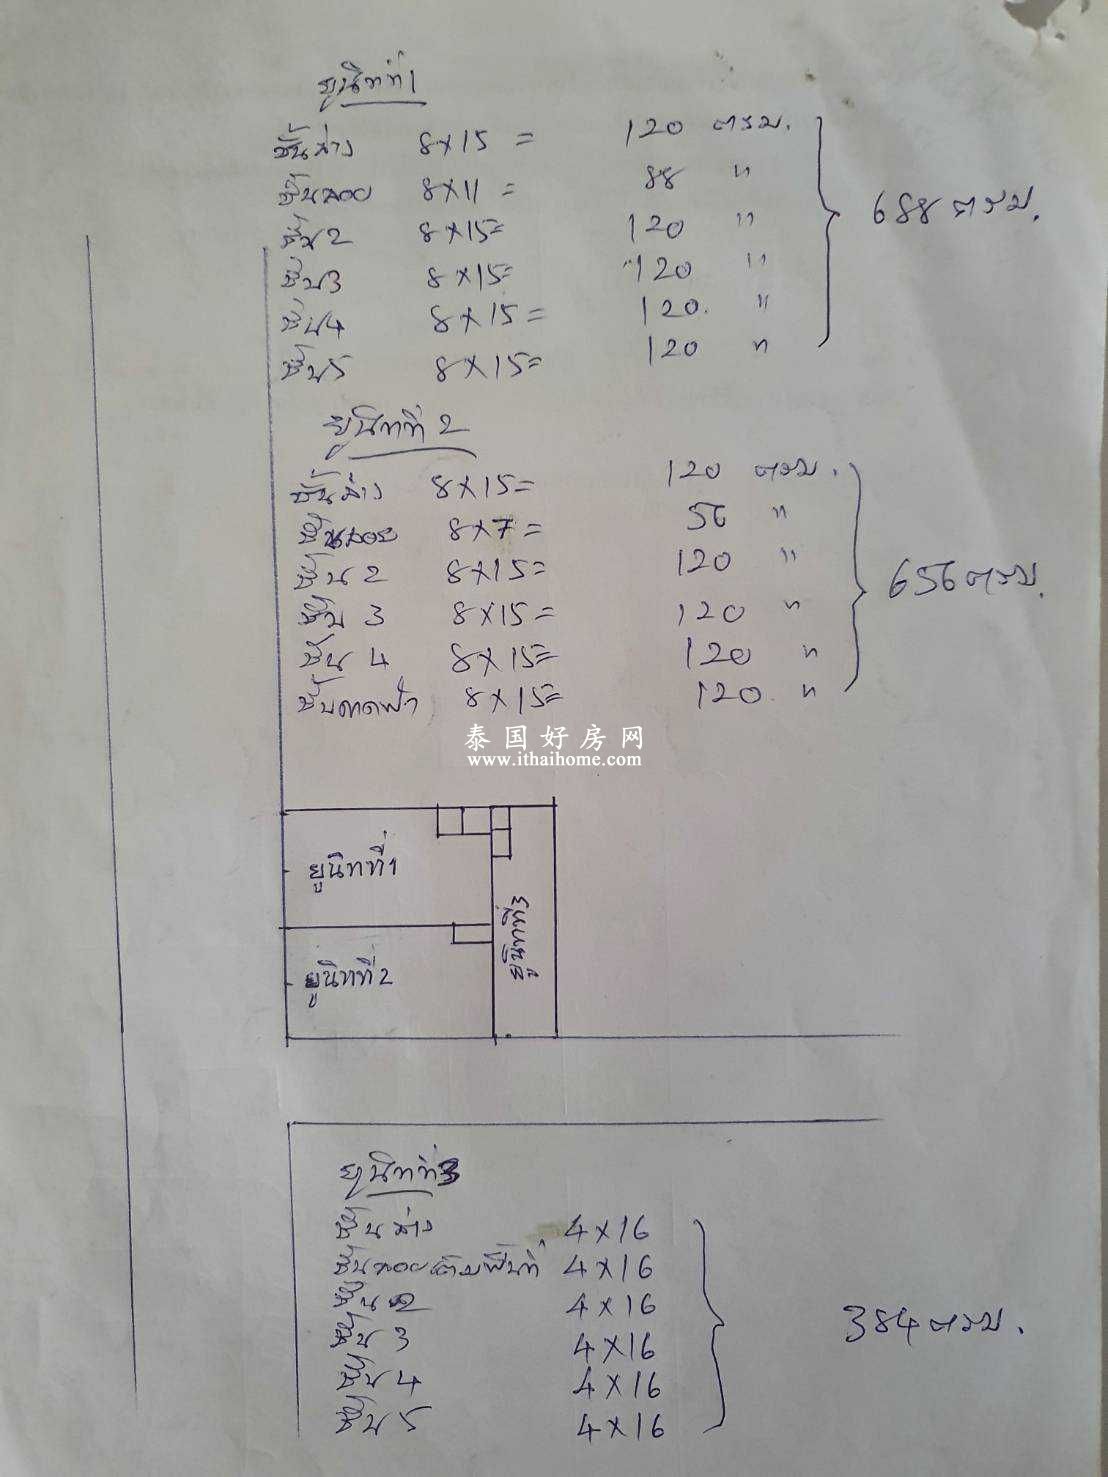 ยูนิทที่1
ชั้นล่าง 8×15 = 120 ตรม.
ชั้นลอย 8×11 = 88 "
ชั้น2 8×15= 120 "
ชั้น3 8×15= 120 "
ชั้น4 8×15= 120. "
ชั้น5 8×15= 120 "
688 ตรม.
ยูนิทที่ 2
ชั้นล่าง 8×15= 120 ตรม.
ชั้นลอย 8×7= 56 "
ชั้น 2 8×15= 120 "
ชั้น 3 8×15= 120 "
ชั้น 4 8×15= 120 "
ชั้นดาดฟ้า 8×15= 120. "
656 ตรม.
泰国好房网
www.ithaihome.com
ยูนิทที่1
ยูนิทที่2
ยูนิทที่3
ยูนิทที่3
ชั้นล่าง 4×16
ชั้นลอยเต็มพื้นที่ 4×16
ชั้น 2 4×16
ชั้น 3 4×16
ชั้น 4 4×16
ชั้น 5 4×16
384 ตรม.